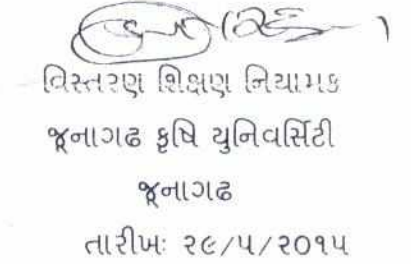 વિસ્તરણ શિક્ષણ નિયામક
જૂનાગઢ કૃષિ યુનિવર્સિટી
જૂનાગઢ
તારીખઃ ૨૯/૫/૨૦૧૫